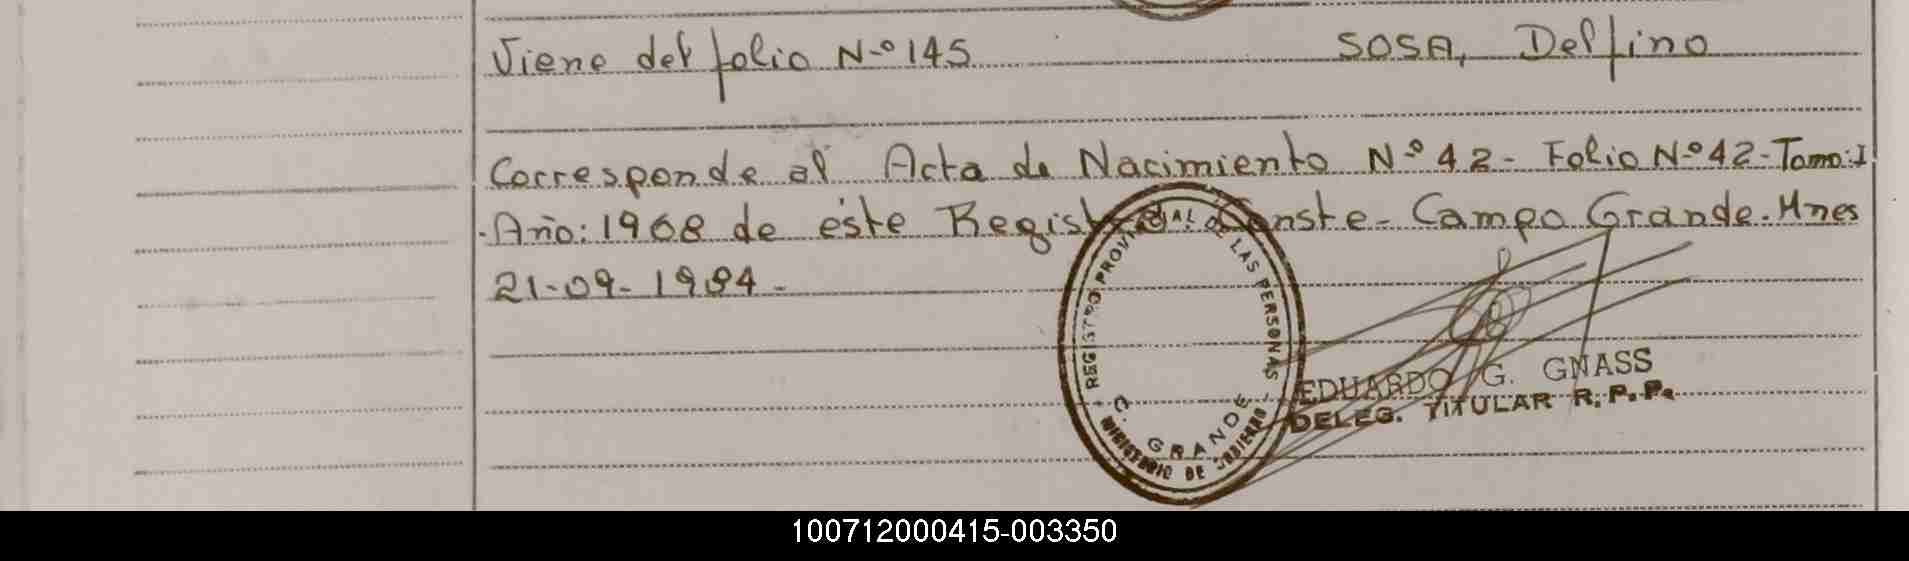 Viene del folio N-º 145 SOSA, Delfino
Corresponde al Acta de Nacimiento N-º 42 - Folio N-º 42 - Tomo: I
Año: 1968 de éste Registro. Conste - Campo Grande. Mnes
21-09-1984 -
REGISTRO PROVINCIAL DE LAS PERSONAS
C. GRANDE
MINISTERIO DE GOBIERNO
EDUARDO G. GNASS
DELEG. TITULAR R.P.P.
100712000415-003350